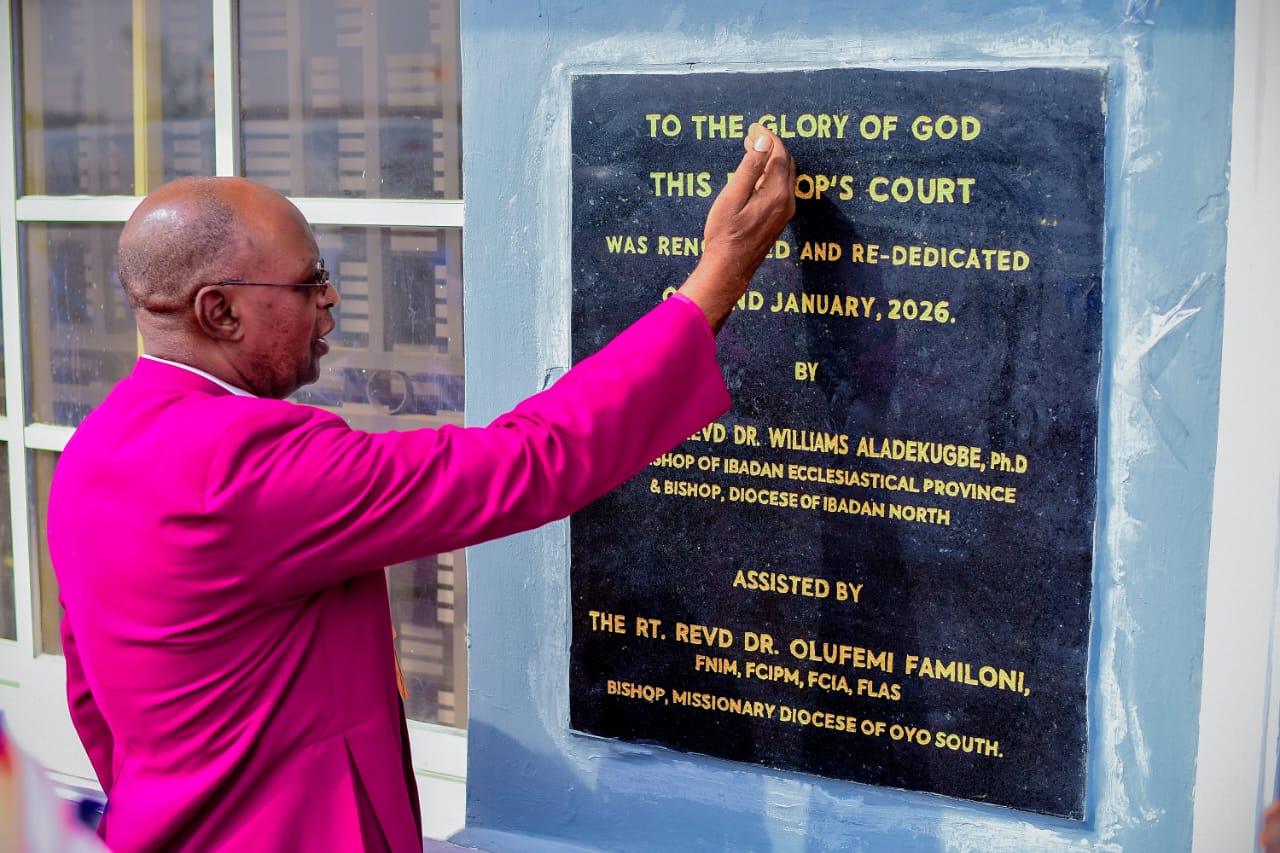 TO THE GLORY OF GOD
THIS COURT
WAS AND RE-DEDICATED
JANUARY, 2026.
BY
REVD DR. WILLIAMS ALADEKUGBE, Ph.D
OF IBADAN ECCLESIASTICAL PROVINCE
& BISHOP, DIOCESE OF IBADAN NORTH
ASSISTED BY
THE RT. REVD DR. OLUFEMI FAMILONI,
FNIM, FCIPM, FCIA, FLAS
BISHOP, MISSIONARY DIOCESE OF OYO SOUTH.